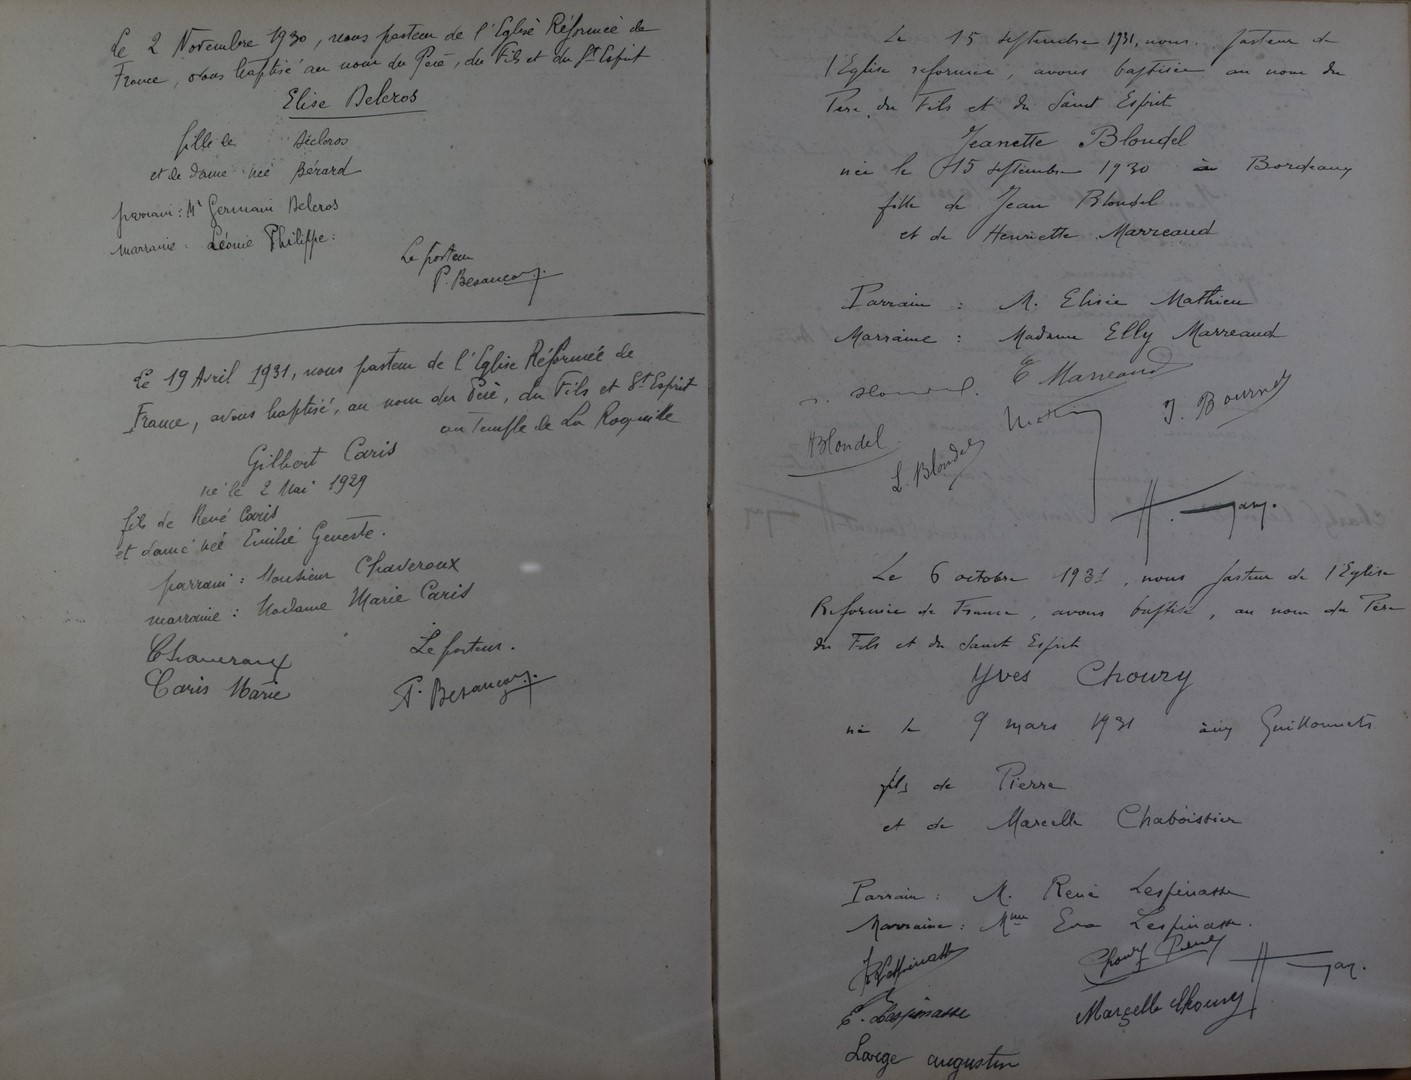 Le 2 Novembre 1930, nous pasteur de l'Eglise Réformée de
France, avons baptisé au nom du Père, du Fils et du St Esprit
Elise Delcros
fille de Delcros
et de dame née Bérard
parrain : Mr Germain Delcros
marraine : Léonie Philippe :
Le pasteur
P. Besançon.
Le 19 Avril 1931, nous pasteur de l'Eglise Réformée de
France, avons baptisé, au nom du Père, du Fils et St Esprit
au Temple de La Roquille
Gilbert Caris
né le 2 Mai 1929
fils de René Caris
et dame née Emilie Geneste.
parrain : Monsieur Chaveroux
marraine : Madame Marie Caris
Chaveroux
Caris Marie
Le pasteur.
P. Besançon.
Le 15 septembre 1931, nous pasteur de
l'Eglise reformée, avons baptisée au nom du
Père, du Fils et du Saint Esprit
Jeanette Blondel
née le 15 septembre 1930 à Bordeaux
fille de Jean Blondel
et de Henriette Marreaud
Parrain : M. Elisée Mathieu
Marraine : Madame Elly Marreaud
E Marreaud
J. Bourn
HBlondel
L. Blondel
H. Gay.
Le 6 octobre 1931, nous pasteur de l'Eglise
Reformée de France, avons baptisé, au nom du Père
du Fils et du Saint Esprit
Yves Choury
né le 9 mars 1931 aux Guillonnets
fils de Pierre
et de Marcelle Chaboissier
Parrain : M. René Lespinasse
Marraine : Mme Eva Lespinasse.
R Lespinasse
Choury Pierre
H Gay.
E. Lespinasse
Marcelle Choury
Large augustin